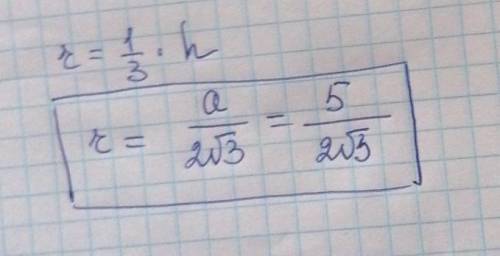 r = 1/3 · h
r = a/2√3 = 5/2√3